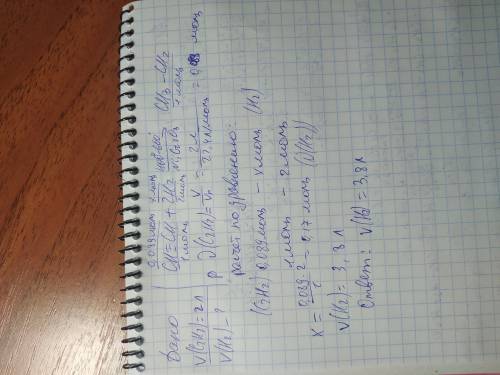 Дано
V(C₂H₂)=2л
V(H₂) - ?
0,089моль x моль
CH≡CH + 2H₂ → CH₃ - CH₃
1 моль 2моль 1 моль
ν(C₂H₂)= V/Vₘ ν = 2л/22,4 л/моль = 0,089 моль
расчёт по уравнению:
(C₂H₂) 0,089моль - x моль (H₂)
1 моль - 2 моль
x = 0,089·2/1 = 0,17 моль (ν(H₂))
V(H₂) = 3,8л
Ответ: V(H₂) = 3,8л